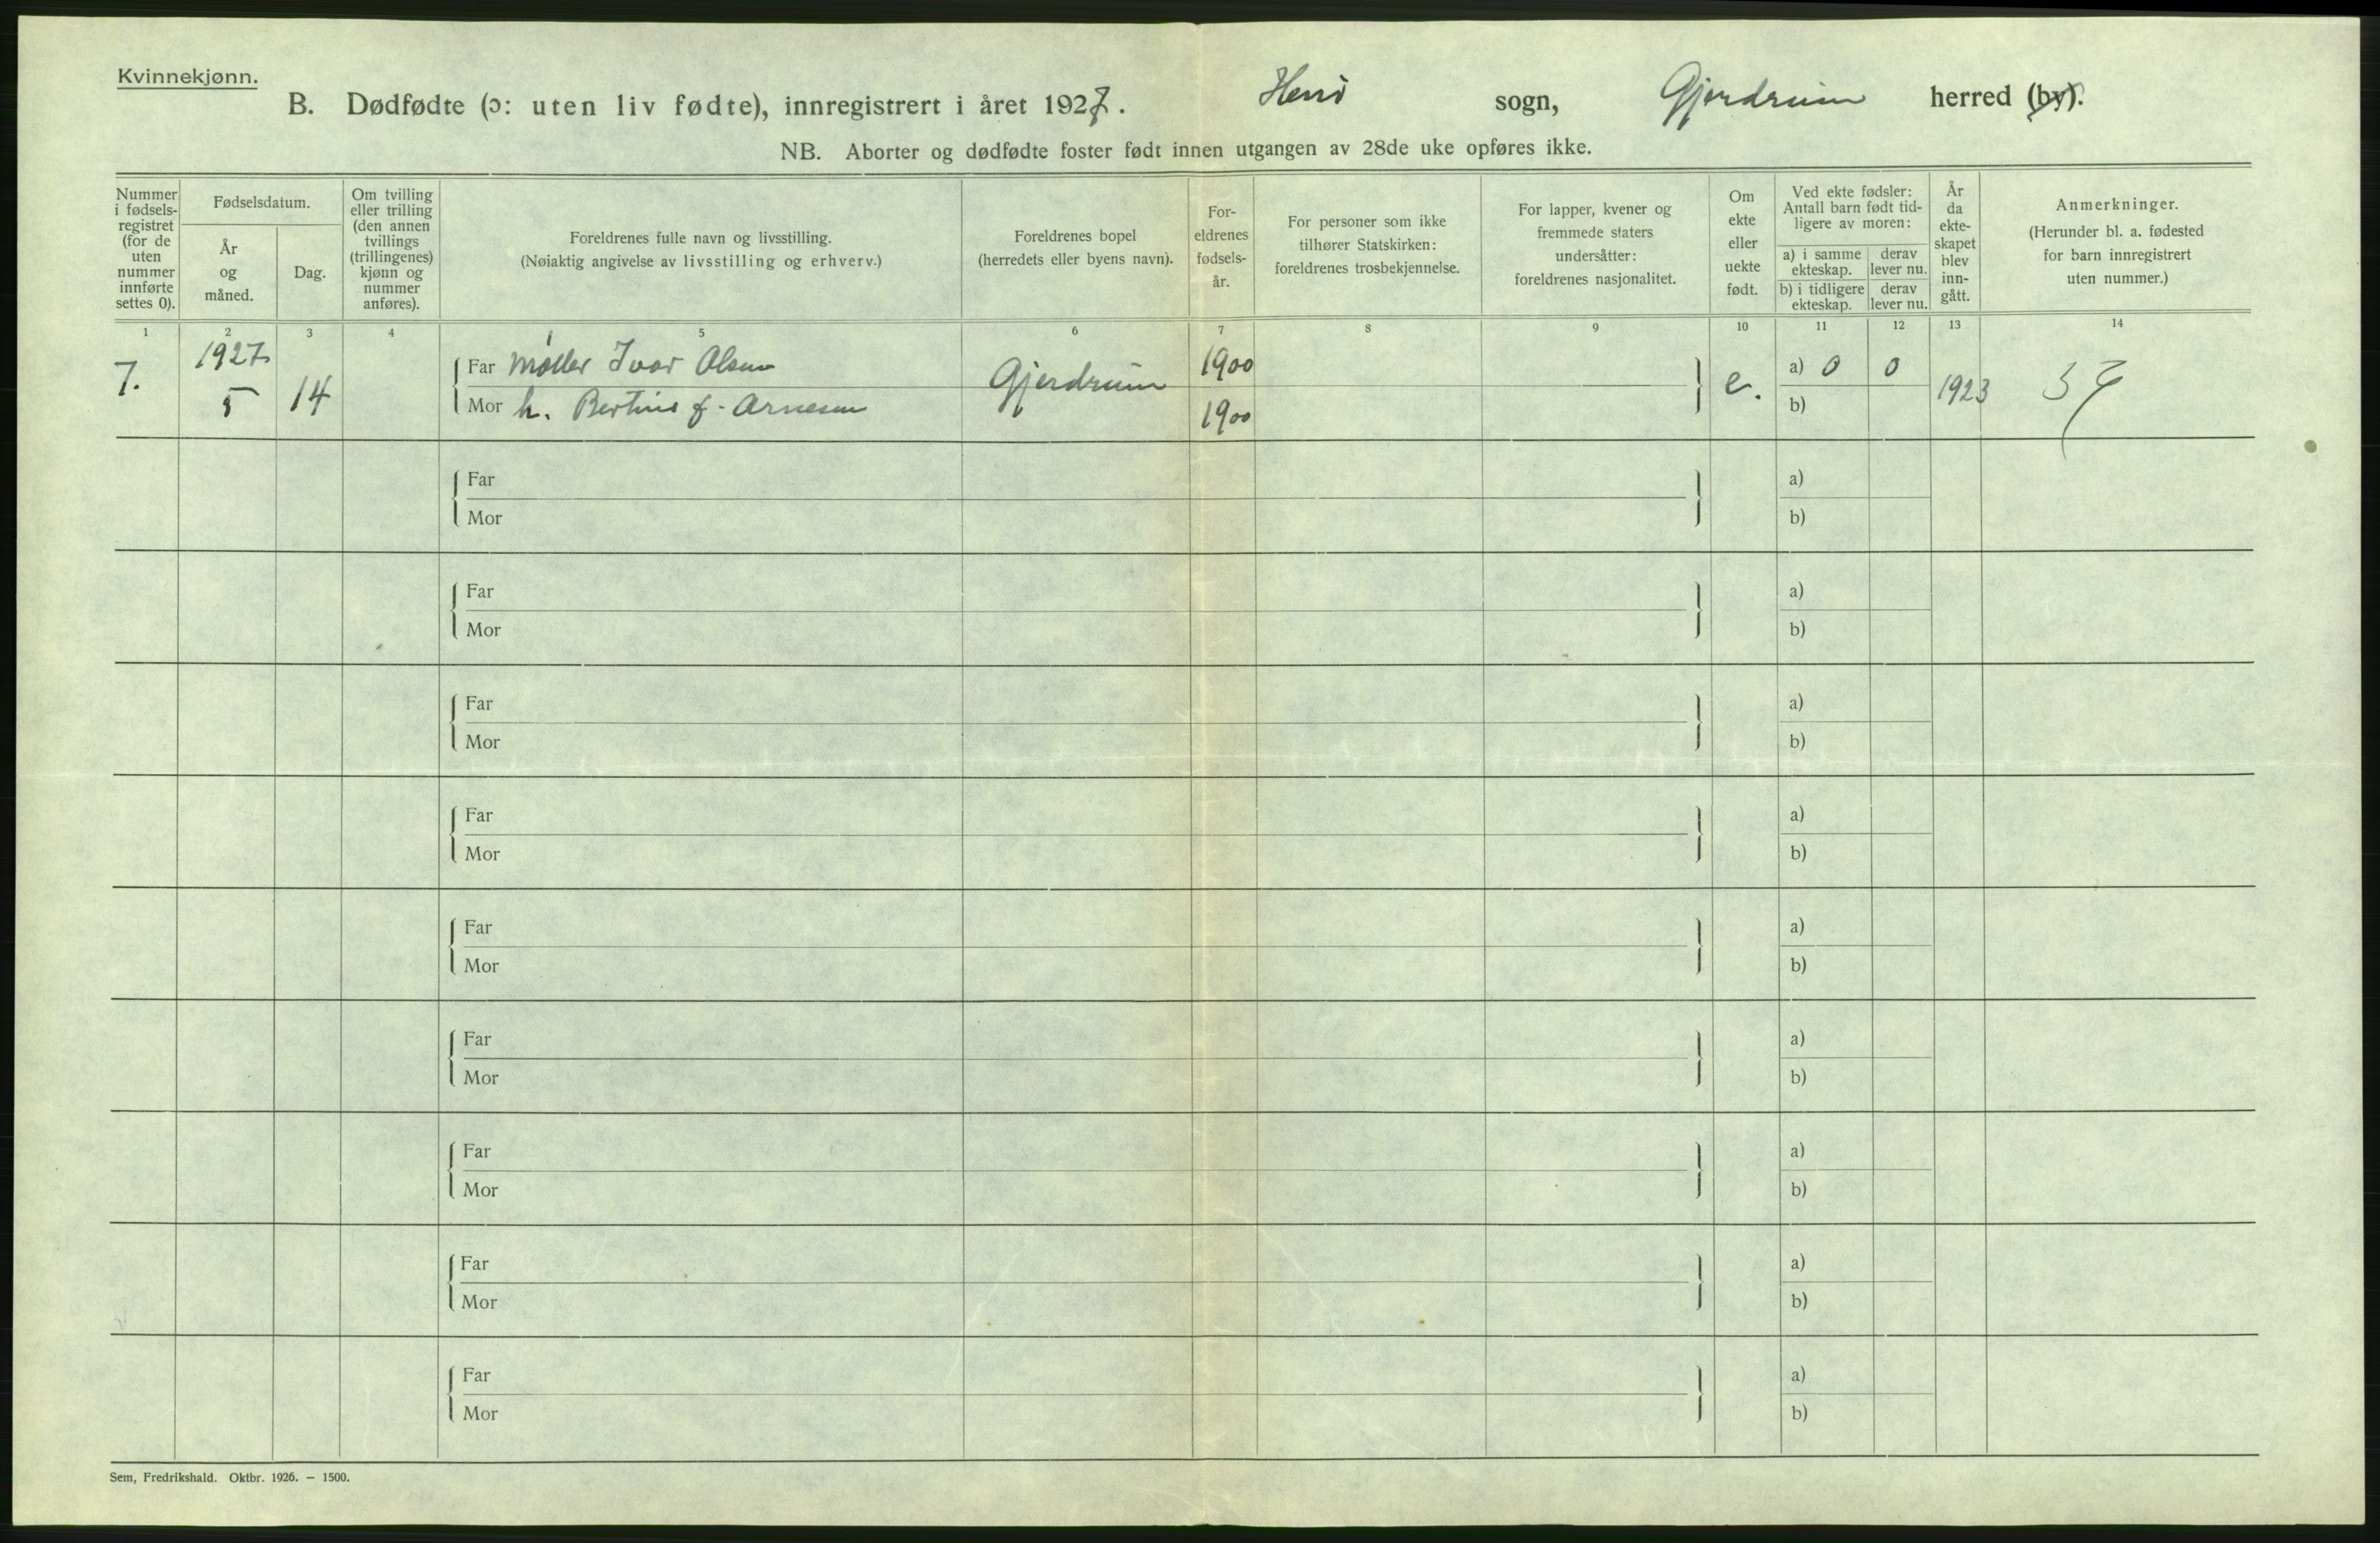 Kvinnekjønn.
B. Dødfødte (ɔ: uten liv fødte), innregistrert i året 1927. sogn, Gjerdrum herred (by).
NB. Aborter og dødfødte foster født innen utgangen av 28de uke opføres ikke.
Nummer i fødselsregistret (for de uten nummer innførte settes 0).
Fødselsdatum.
År og måned.
Dag.
Om tvilling eller trilling (den annen tvillings (trillingenes) kjønn og nummer anføres).
Foreldrenes fulle navn og livsstilling.
(Nøiaktig angivelse av livsstilling og erhverv.)
Foreldrenes bopel
(herredets eller byens navn).
Foreldrenes fødselsår.
For personer som ikke tilhører Statskirken: foreldrenes trosbekjennelse.
For lapper, kvener og fremmede staters undersåtter: foreldrenes nasjonalitet.
Om ekte eller uekte født.
Ved ekte fødsler: Antall barn født tidligere av moren:
a) i samme ekteskap. derav lever nu.
b) i tidligere ekteskap. derav lever nu.
År da ekteskapet blev inngått.
Anmerkninger.
(Herunder bl. a. fødested for barn innregistrert uten nummer.)
1 2 3 4 5 6 7 8 9 10 11 12 13 14
7. 1927 5 14 Far Møller Ivar Olsen Gjerdrum 1900 e. a) 0 0 1923
Mor h. f. Arnesen 1900 b)
Far a)
Mor b)
Far a)
Mor b)
Far a)
Mor b)
Far a)
Mor b)
Far a)
Mor b)
Far a)
Mor b)
Far a)
Mor b)
Far a)
Mor b)
Far a)
Mor b)
Sem, Fredrikshald. Oktbr. 1926. — 1500.